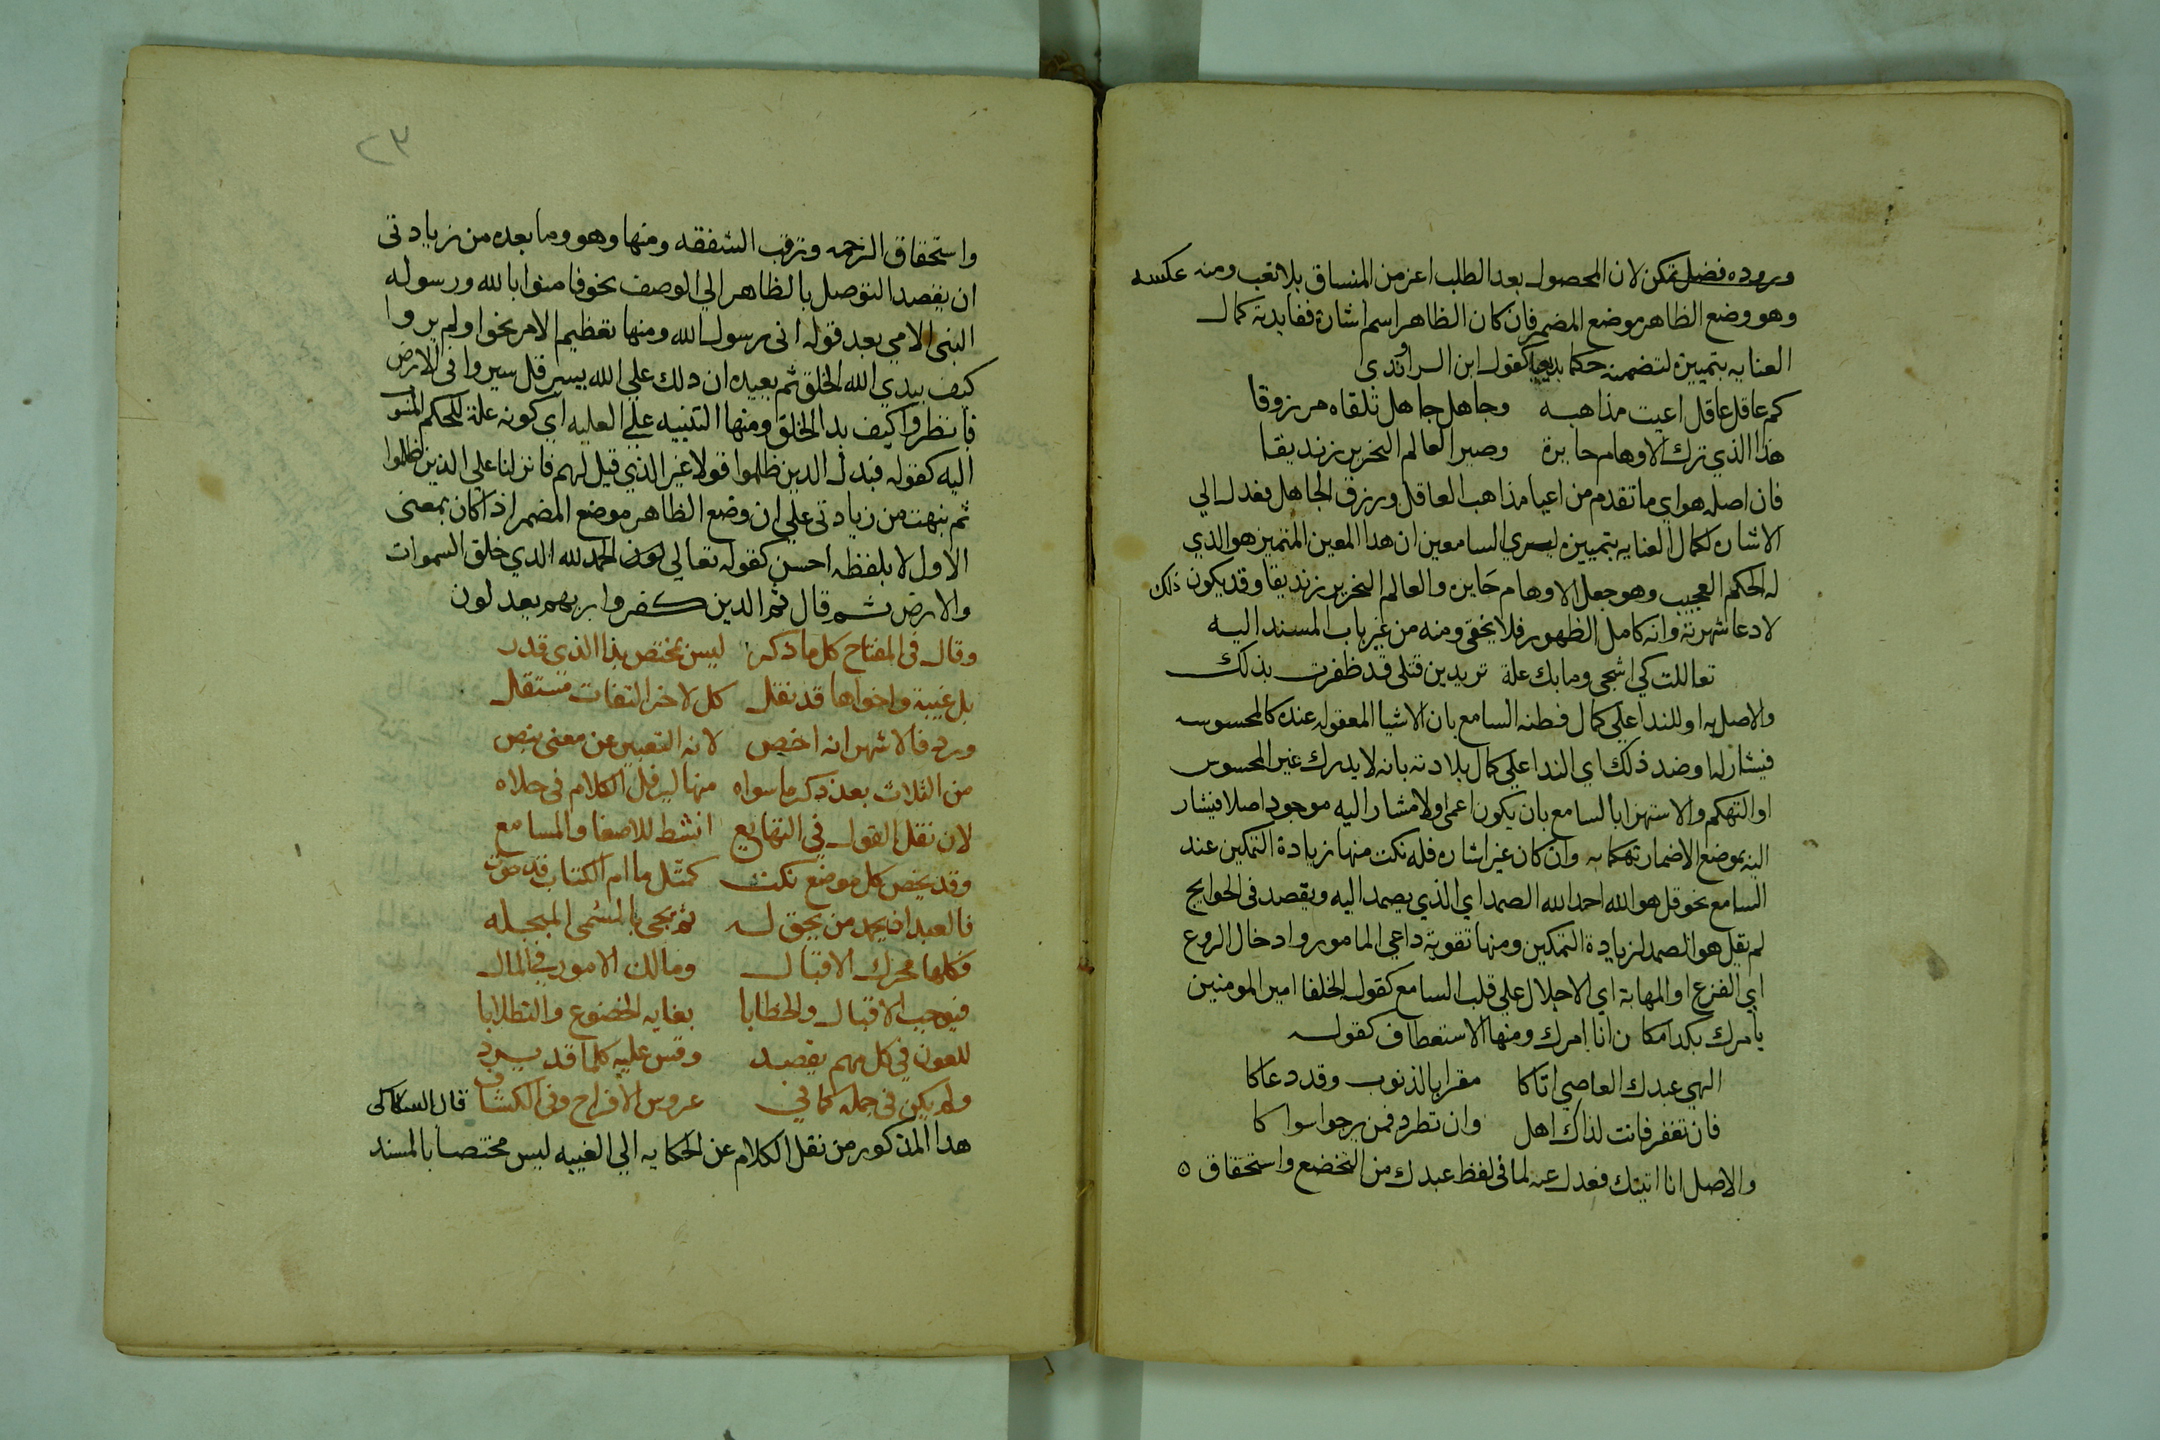 وروده فضل تمكن لان المحصول بعد الطلب اعز من المنساق بلا تعب ومنه عكسه
وهو وضع الظاهر موضع المضمر فان كان الظاهر اسم اشارة ففايدته كمال
العنايه بتمييزه لتضمنه حكما بديعا كقول ابن الراوندي
كم عاقل عاقل اعيت مذاهبه وجاهل جاهل تلقاه مرزوقا
هذا الذي ترك الاوهام حايرة وصير العالم النحرير زنديقا
فان اصله هو اي ما تقدم من اعيا مذاهب العاقل ورزق الجاهل فعدل الي
الاشاره لكمال العنايه بتمييزه ليري السامعين ان هدا المعين المتميز هو الذي
له الحكم العجيب وهو جعل الاوهام حايره والعالم النحرير زنديقا وقد يكون ذلك
لادعا شهرته وانه كامل الظهور فلا يخفي ومنه من غير باب المسند اليه
تعاللت كي اشجى وما بك علة تريدين قتلى قد ظفرت بذلك
والاصل به او للندا علي كمال فطنه السامع بان الاشيا المعقوله عنده كالمحسوسه
فيشار لها وضد ذلك اي الندا علي كمال بلادته بانه لا يدرك غير المحسوس
او التهكم والاستهزا بالسامع بان يكون اعمى او لا مشار اليه موجود اصلا فيشار
اليه بموضع الاضمار تهكما به وان كان غير اشاره فله نكت منها زيادة التمكين عند
السامع نحو قل هو الله احد الله الصمد اي الذي يصمد اليه ويقصد في الحوايج
لم يقل هو الصمد لزيادة التمكين ومنها تقوية داعي المامور وادخال الروع
اي الفزع او المهابة اي الاجلال علي قلب السامع كقول الخلفا امير المومنين
يامرك بكدا مكان انا امرك ومنها الاستعطاف كقوله
الهي عبدك العاصي اتاكا مقرا بالذنوب وقد دعاكا
فان تغفر فانت لذاك اهل وان تطرد فمن يرجوا سواكا
والاصل انا اتيتك فعدل عنه لما في لفظ عبدك من التخضع واستحقاق ٥
٢٣
واستحقاق الرحمه وترقب الشفقه ومنها وهو وما بعده من زيادتي
ان يقصد التوصل بالظاهر الي الوصف نحو فامنوا بالله ورسوله
النبي الامي بعد قوله اني رسول الله ومنها تعظيم الامر نحو اولم يروا
كيف يبدي الله الخلق ثم يعيده ان دلك علي الله يسير قل سيروا في الارض
فانظروا كيف بدا الخلق ومنها التنبيه علي العليه اي كونه علة للحكم المنسوب
اليه كقوله فبدل الدين ظلموا قولا غير الذي قيل لهم فانزلنا علي الذين ظلموا
ثم نبهت من زيادتي علي ان وضع الظاهر موضع المضمر اذا كان بمعنى
الاول لا بلفظه احسن كقوله تعالي الحمد لله الدي خلق السموات
والارض ثم قال ثم الدين كفروا بربهم يعدلون
وقال في المفتاح كل ما ذكر ليس بمختص بذا الذي قدر
بل غيبة واخواها قد نقل كل لاخر التفات مستقل
ورد فالاشهر انه اخص لانه التعبير عن معنى بنص
من الثلاث بعد ذكر ما سواه منها ليرفل الكلام في حلاه
لان نقل القول في المهايع انشط للاصغا والمسامع
وقد يخص كل موضع نكت كمثل ما ام الكتاب قد حوت
فالعبد اذ يحمد من يحق له ثم يجي بالمسمى المبجله
فكلها محرك الاقبال ومالك الامور في المال
فيوجب الاقبال والخطابا بغايه الخضوع والتطلابا
للعون في كل مهم يقصد وقس عليه كلما قد يرد
ولم يكن في جمله كما في عروس الافراح وفي الكشاف قال السكاكى
هدا المذكور من نقل الكلام عن الحكايه الي الغيبه ليس مختصا بالمسند